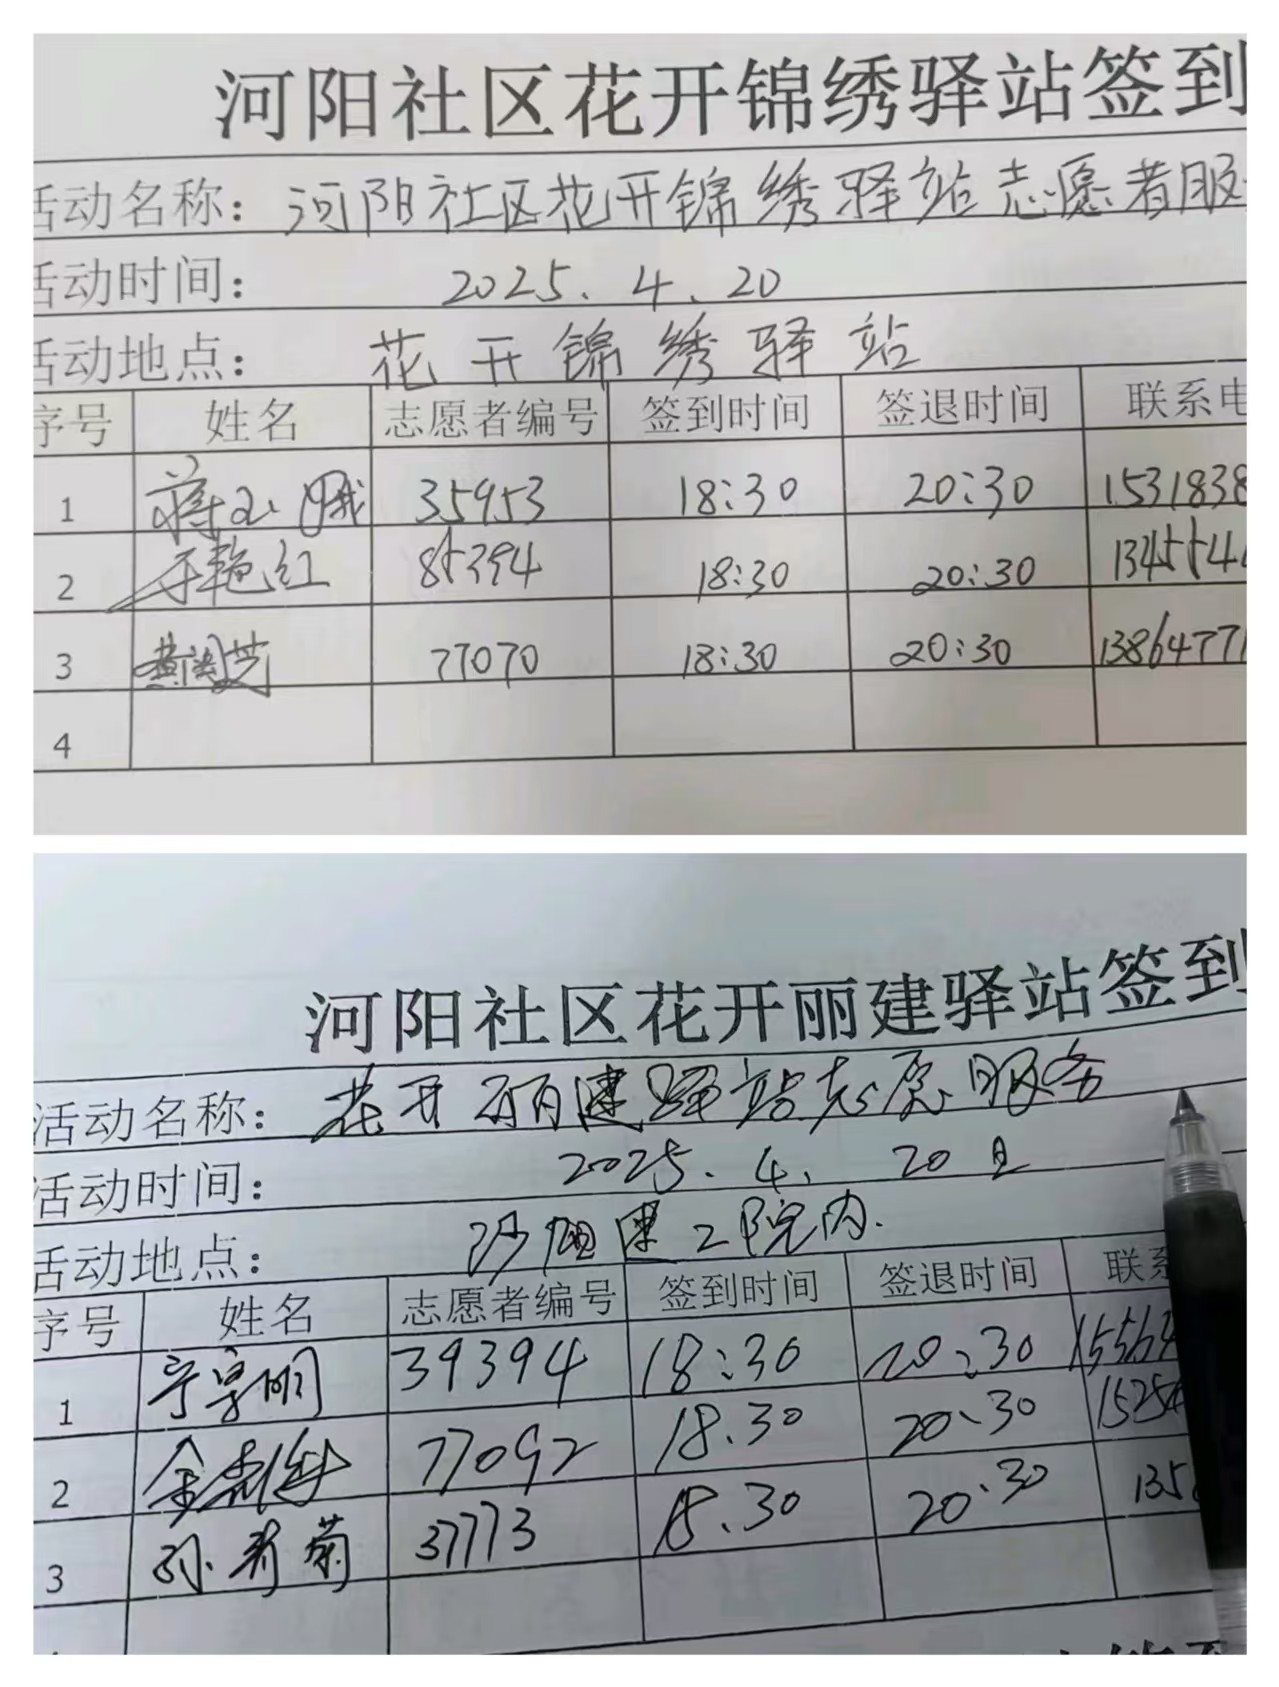 河阳社区花开锦绣驿站签到
活动名称：河阳社区花开锦绣驿站志愿者服
活动时间： 2025.4.20
活动地点： 花开锦绣驿站
序号 姓名 志愿者编号 签到时间 签退时间 联系电
1 蒋玉娥 35953 18:30 20:30 1531838
2 于艳红 85394 18:30 20:30 1345542
3 77070 18:30 20:30 13864771
4
河阳社区花开丽建驿站签到
活动名称：花开丽建驿站志愿服务
活动时间： 2025.4.20日
活动地点： 院内.
序号 姓名 志愿者编号 签到时间 签退时间 联系
1 39394 18:30 20:30 15563
2 77092 18.30 20:30 1525
3 孙秀菊 37773 18.30 20:30 135